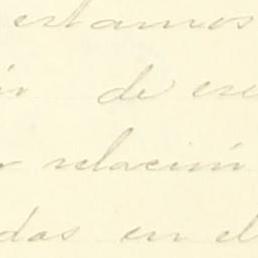 estamos
de
relación
das en el